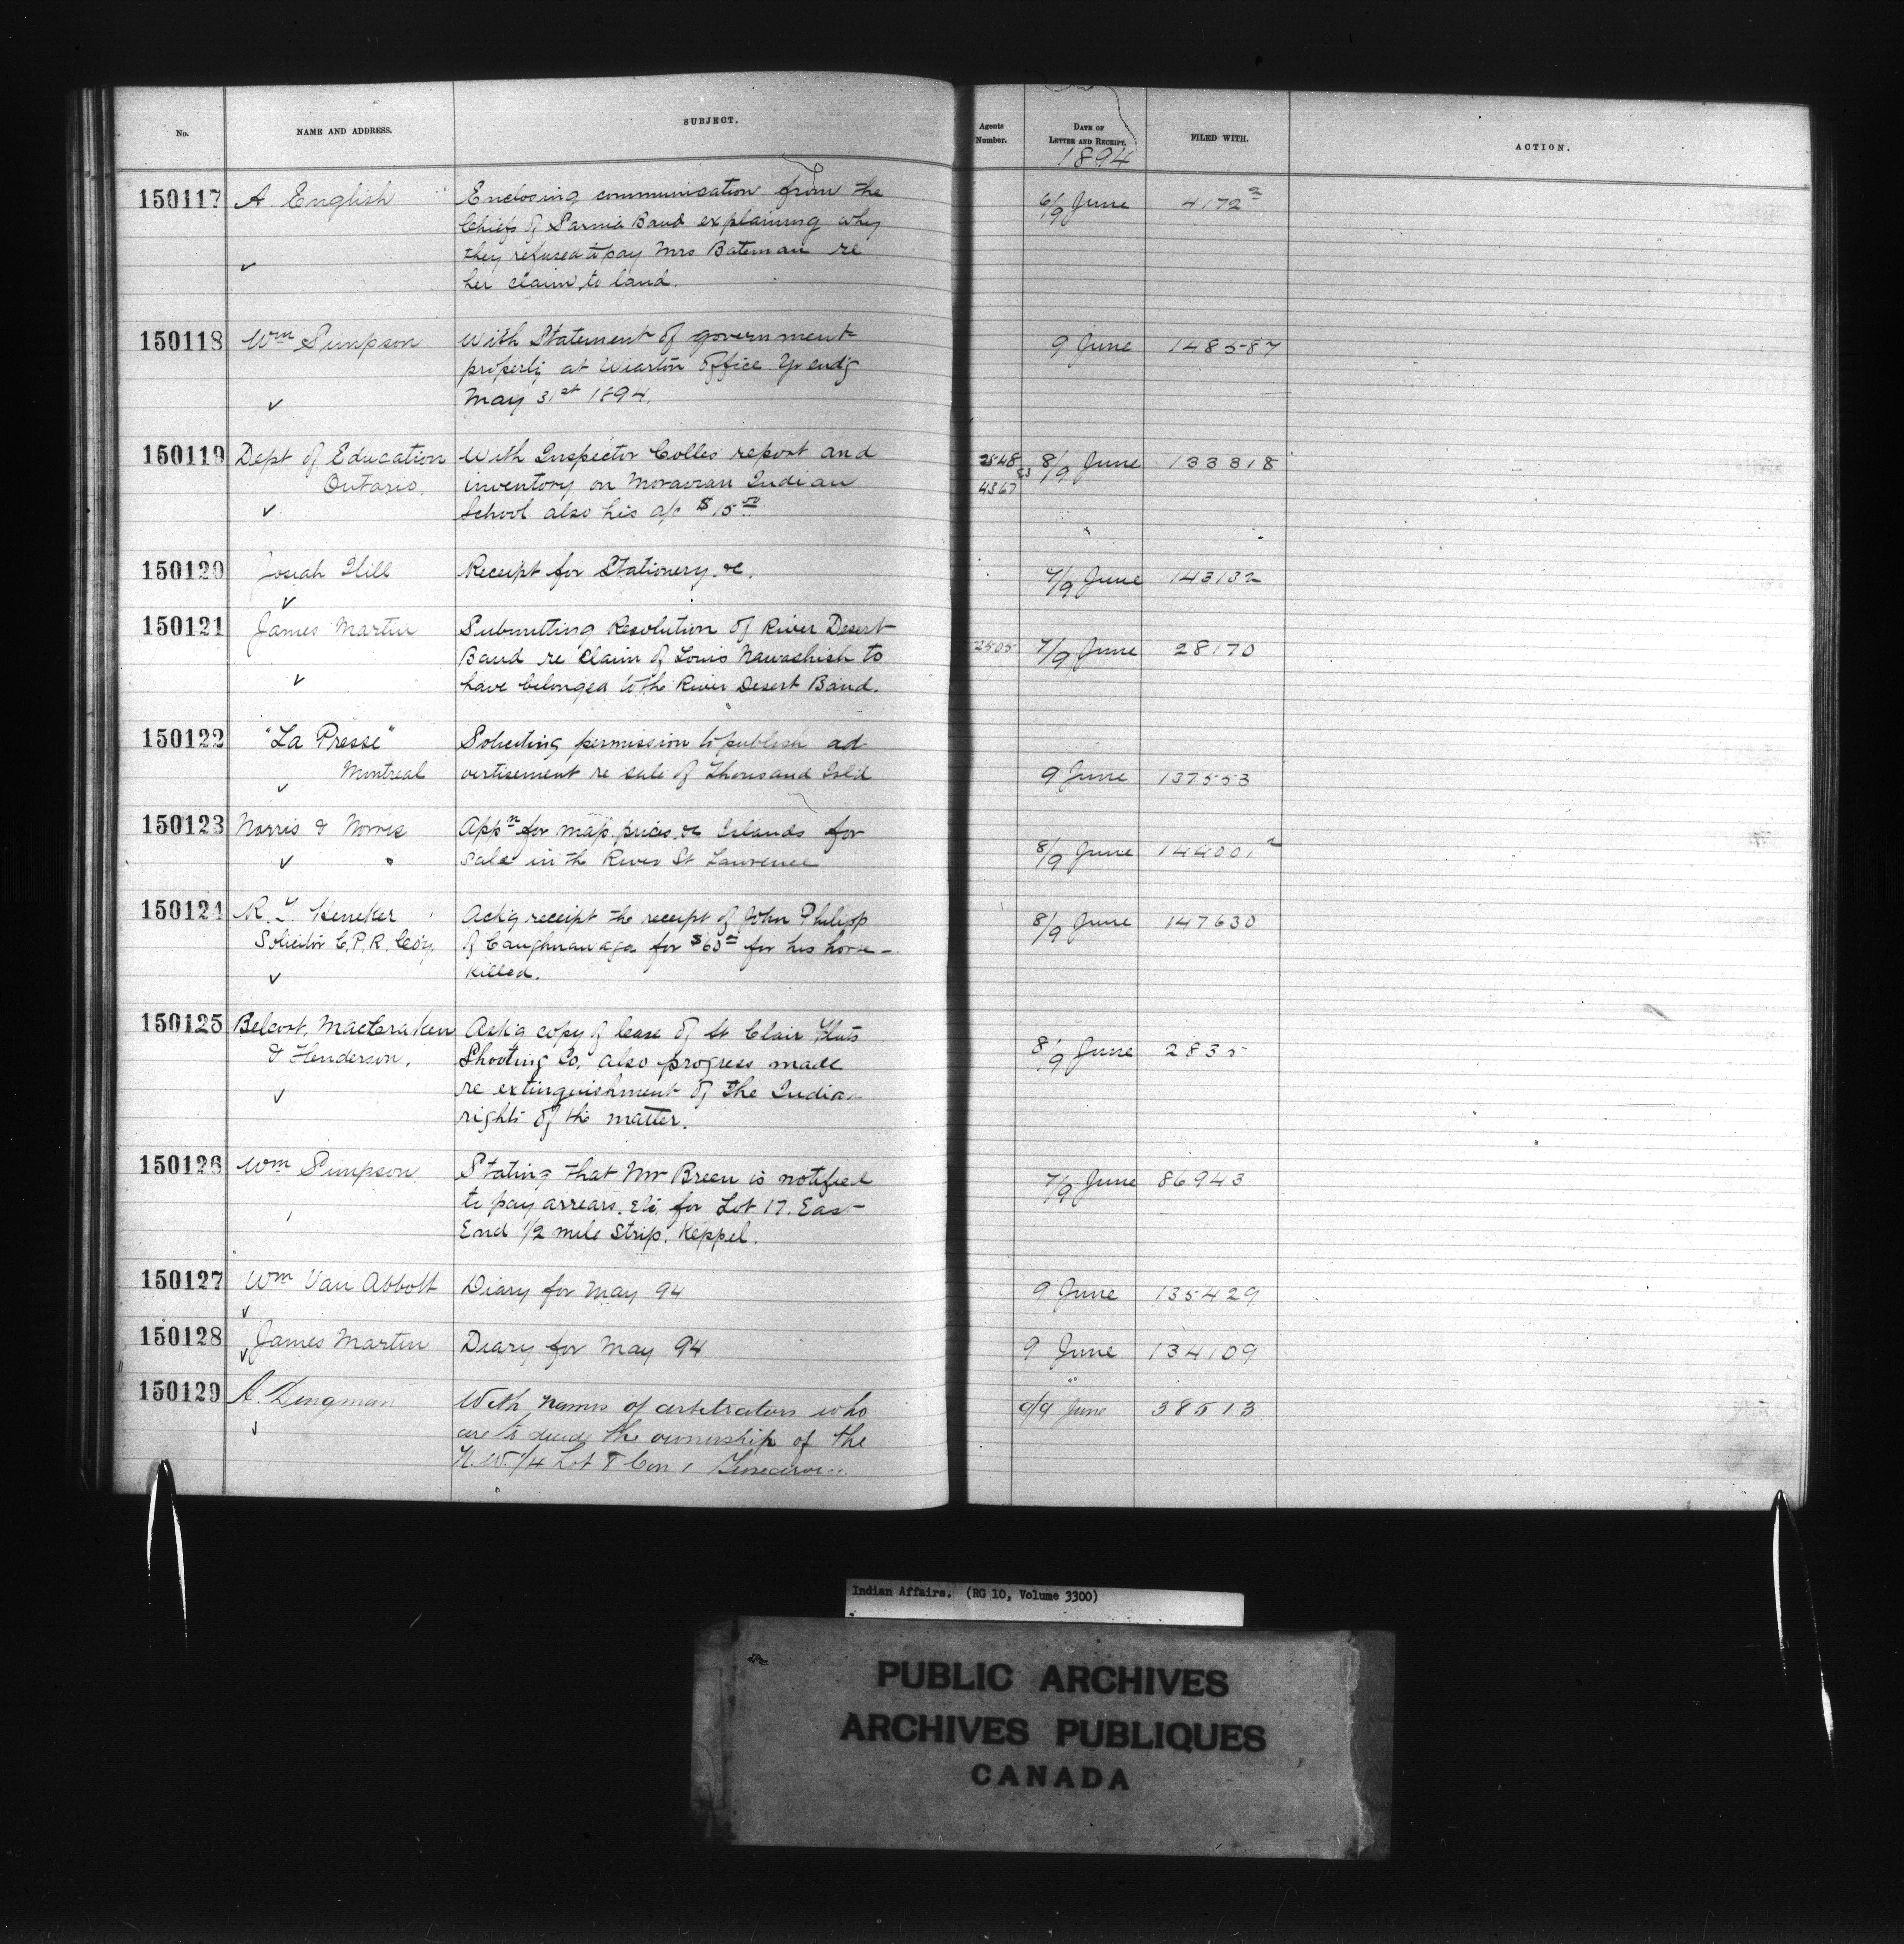 No. NAME AND ADDRESS. SUBJECT. Agents Number. DATE OF LETTER AND RECEIPT. FILED WITH. ACTION.
1894
150117 A. English Enclosing communication from the 6/9 June 4172²
Chiefs of Sarnia Band explaining why
they refused to pay Mrs Bateman re
her claim to land.
150118 Wm Simpson With Statement of government 9 June 148587
property at Wiarton Office yr end'g
May 31st 1894.
150119 Dept of Education With Inspector Colles report and 2548 8/9 June 133318
Ontario. inventory on Moravian Indian 4367 93
School also his a/c $15.00
150120 Josiah Hill Receipt for Stationery &c. 7/9 June 143132
150121 James Martin Submitting Resolution of River Desert
Band re Claim of Louis Nawashish to 2505 7/9 June 28170
have belonged to the River Desert Band.
150122 "La Presse" Soliciting permission to publish ad
Montreal vertisement re sale of Thousand Isld 9 June 137553
150123 Norris & Norris Appn for map, prices &c Islands for
sale in the River St Lawrence 8/9 June 144001²
150124 R. T. Heneker Ack'g receipt the receipt of John Philipp 8/9 June 147630
Solicitor C.P.R. Co'y. of Caughnawaga for $60 for his horse
killed.
150125 Belcourt, MacCraken Ask'g copy of lease of St Clair Flats
& Henderson. Shooting Co. also progress made 8/9 June 2835
re extinguishment of the Indian
rights of the matter.
150126 Wm Simpson Stating that Mr Breen is notified 7/9 June 86943
to pay arrears. etc. for Lot 17. East
End 1/2 mile Strip. Keppel.
150127 Wm Van Abbott Diary for May 94 9 June 135429
150128 James Martin Diary for May 94 9 June 134109
150129 A. Dingman With names of arbitrators who 9/9 June 38513
are to decide the ownership of the
N.W. 1/4 Lot 8 Con 1
Indian Affairs. (RG 10, Volume 3300)
PUBLIC ARCHIVES
ARCHIVES PUBLIQUES
CANADA